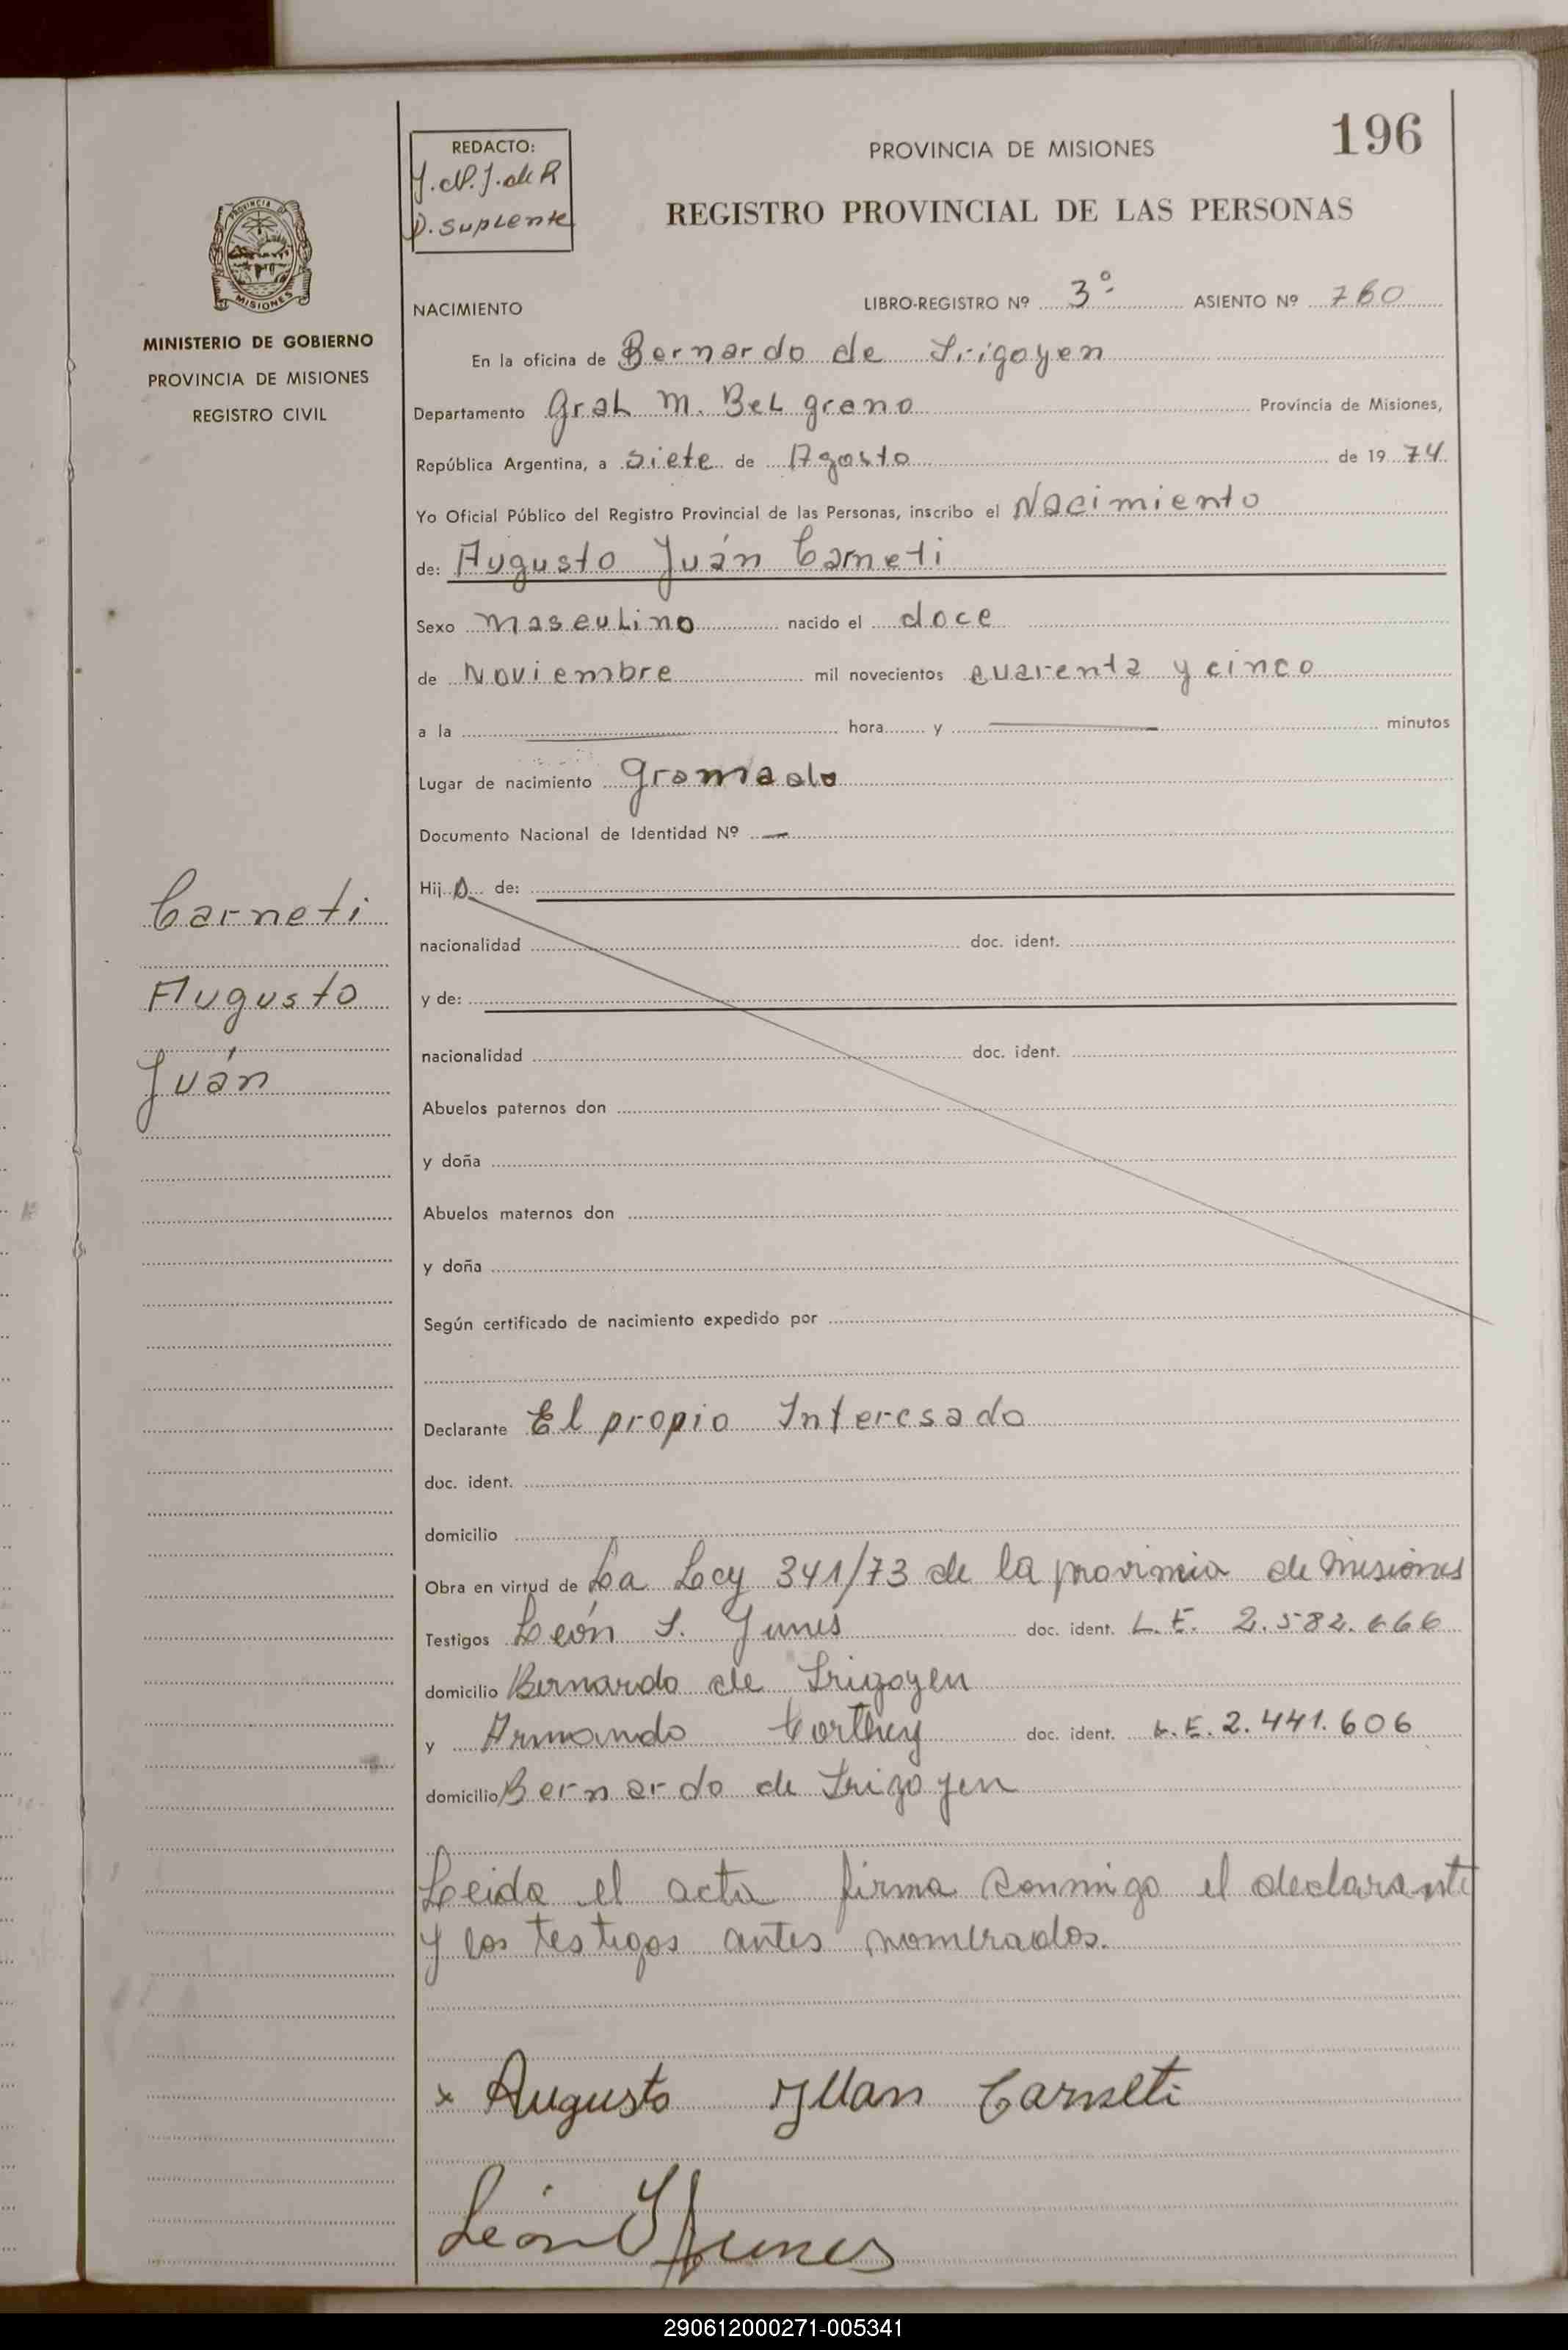 196
REDACTO:
D. Suplente
PROVINCIA DE MISIONES
REGISTRO PROVINCIAL DE LAS PERSONAS
PROVINCIA DE
MISIONES
MINISTERIO DE GOBIERNO
PROVINCIA DE MISIONES
REGISTRO CIVIL
NACIMIENTO LIBRO-REGISTRO Nº 3º ASIENTO Nº 760
En la oficina de Bernardo de Irigoyen
Departamento Gral M. Belgrano Provincia de Misiones,
República Argentina, a siete de Agosto de 19 74
Yo Oficial Público del Registro Provincial de las Personas, inscribo el Nacimiento
de: Augusto Juán Carneti
Sexo masculino nacido el doce
de Noviembre mil novecientos cuarenta y cinco
a la hora y minutos
Lugar de nacimiento Gramado
Documento Nacional de Identidad Nº —
Carneti
Augusto
Juán
Hijo de:
nacionalidad doc. ident.
y de:
nacionalidad doc. ident.
Abuelos paternos don
y doña
Abuelos maternos don
y doña
Según certificado de nacimiento expedido por
Declarante El propio Interesado
doc. ident.
domicilio
Obra en virtud de La Ley 341/73 de la provincia de Misiones
Testigos León I. Junes doc. ident. L.E. 2.582.666
domicilio Bernardo de Irigoyen
y Armando Corthey doc. ident. L.E. 2.441.606
domicilio Bernardo de Irigoyen
Leida el acta firma conmigo el declarante
y los testigos antes nombrados.
x Augusto Juan Carneti
León Junes
290612000271-005341